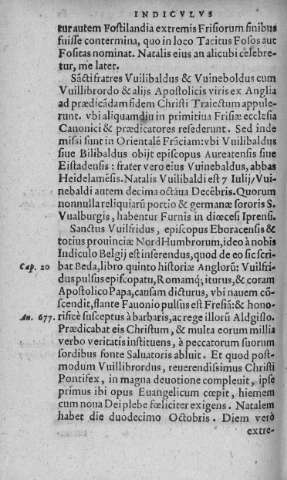 INDICVLVS
tur autem Fostilandia extremis Frisiorum finibus
fuisse contermina, quo in loco Tacitus Fosos aut
Fositas nominat. Natalis eius an alicubi celebre-
tur, me latet.
Sāctifratres Vuilibaldus & Vuineboldus cum
Vuillibrordo & alijs Apostolicis viris ex Anglia
ad prædicādam fidem Christi Traiectum appule-
runt. vbi aliquamdiu in primitius Frisiæ ecclesia
Canonici & prædicatores resederunt. Sed inde
missi sunt in Orientalē Frāciam: vbi Vuilibaldus
siue Bilibaldus obijt episcopus Aureatensis siue
Eistadensis: frater vero eius Vuinebaldus, abbas
Heidelamēsis. Natalis Vuilibaldi est 7 Iulij, Vui-
nebaldi autem decima octaua Decēbris. Quorum
nonnulla reliquiarū portio & germanæ sororis S.
Vualburgis, habentur Furnis in diœcesi Iprensi.
Sanctus Vuilfridus, episcopus Eboracensis &
totius prouinciæ NordHumbrorum, ideo à nobis
Indiculo Belgij est inferendus, quod de eo sic scri-
Cap. 20 bat Beda, libro quinto historiæ Anglorū: Vuilfri-
dus pulsus episcopatu, Romamq; iturus, & coram
Apostolico Papa, causam dicturus, vbi nauem cō-
scendit, flante Fauonio pulsus est Fresiā: & hono-
An. 677. rificè susceptus à barbaris, ac rege illorū Aldgislo.
Prædicabat eis Christum, & multa eorum millia
verbo veritatis instituens, à peccatorum suorum
sordibus fonte Saluatoris abluit. Et quod post-
modum Vuillibrordus, reuerendissimus Christi
Pontifex, in magna deuotione compleuit, ipse
primus ibi opus Euangelicum cœpit, hiemem
cum noua Dei plebe fœliciter exigens. Natalem
habet die duodecimo Octobris. Diem verò
extre-